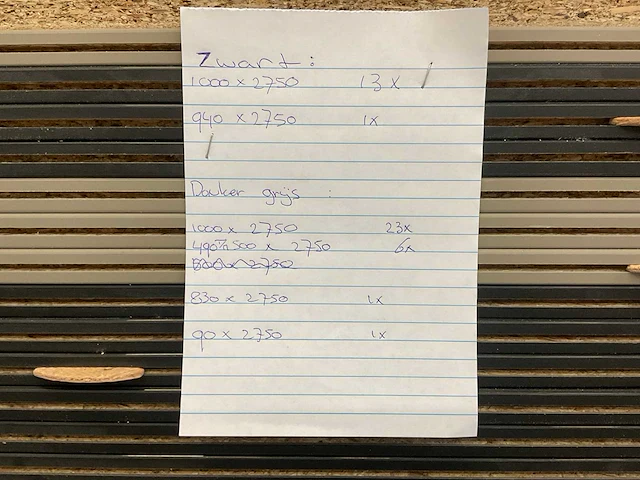 Zwart:
1000 x 2750 13 x
940 x 2750 1x
Donker grijs :
1000 x 2750 23x
490 T/m 500 x 2750 6x
830 x 2750 1x
90 x 2750 1x